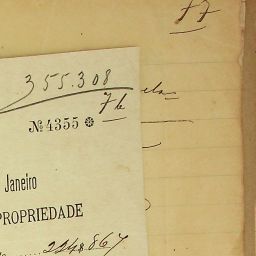 77
355.308
7 b
ela
№ 4355
Janeiro
PROPRIEDADE
224$867